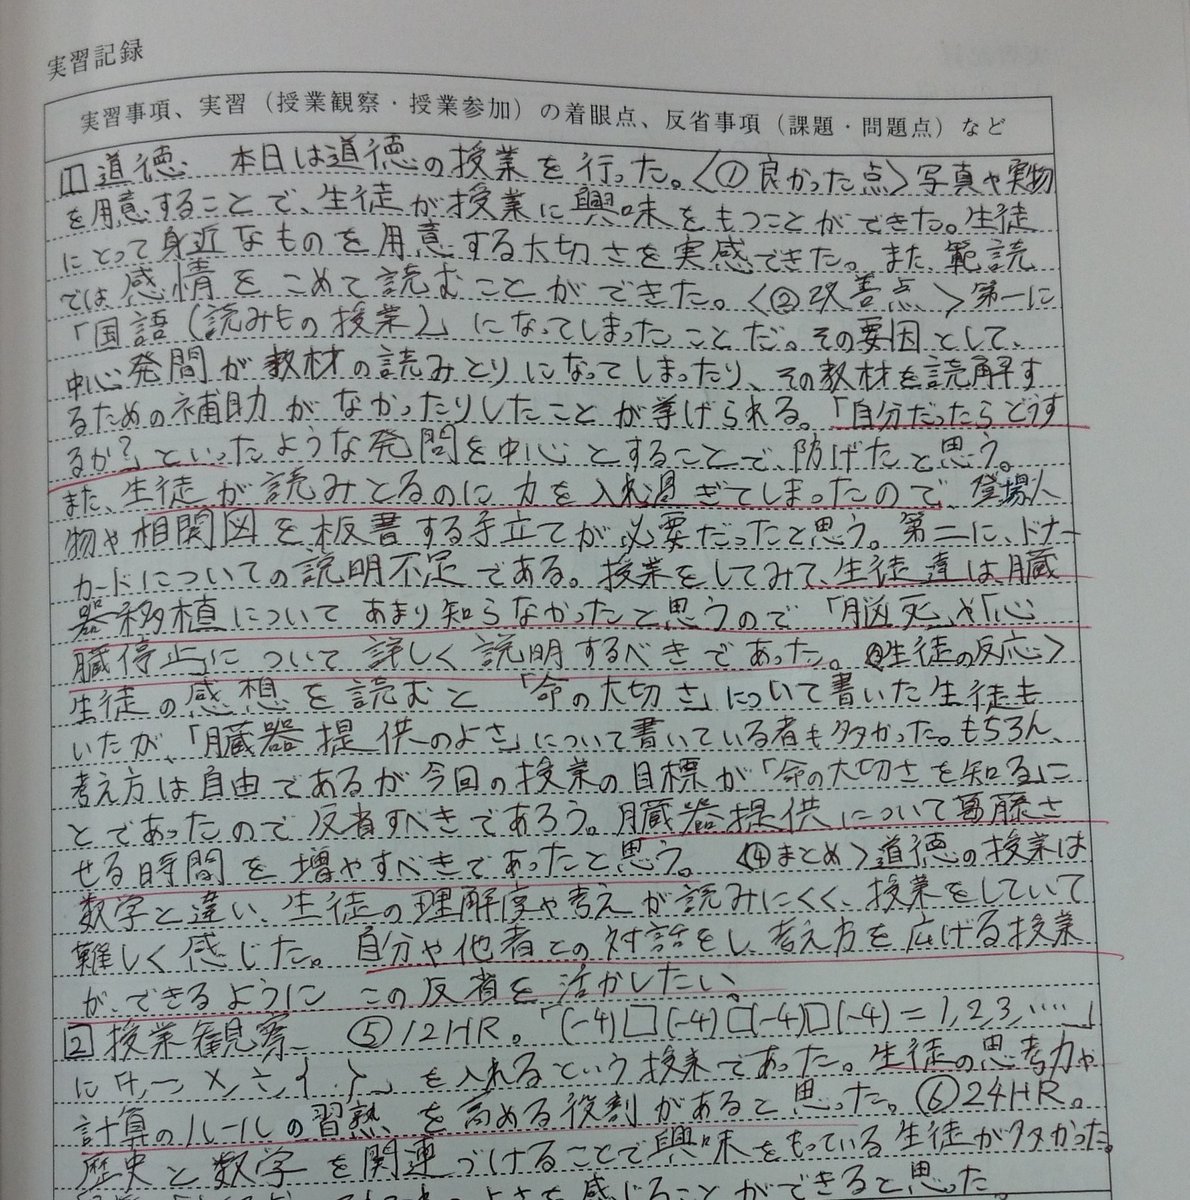 実習記録
実習事項、実習（授業観察・授業参加）の着眼点、反省事項（課題・問題点）など
1 道徳. 本日は道徳の授業を行った。〈① 良かった点〉写真や実物
を用意することで、生徒が授業に興味をもつことができた。生徒
にとって身近なものを用意する大切さを実感できた。また、範読
では感情をこめて読むことができた。〈② 改善点〉第一に
「国語（読みもの授業）」になってしまったことだ。その要因として、
中心発問が教材の読みとりになってしまったり、その教材を読解す
るための補助がなかったりしたことが挙げられる。「自分だったらどうす
るか？」といったような発問を中心とすることで、防げたと思う。
また、生徒が読みとるのに力を入れ過ぎてしまったので、登場人
物や相関図を板書する手立てが必要だったと思う。第二に、ドナー
カードについての説明不足である。授業をしてみて、生徒達は臓
器移植についてあまり知らなかったと思うので「脳死」や「心
臓停止」について詳しく説明するべきであった。③生徒の反応〉
生徒の感想を読むと「命の大切さ」について書いた生徒も
いたが、「臓器提供のよさ」について書いている者も多かった。もちろん、
考え方は自由であるが今回の授業の目標が「命の大切さを知るこ
とであったので反省すべきであろう。臓器提供について葛藤さ
せる時間を増やすべきであったと思う。〈④まとめ〉道徳の授業は
数学と違い、生徒の理解度や考えが読みにくく、授業をしていて
難しく感じた。自分や他者との対話をし、考え方を広げる授業
が、できるようにこの反省を活かしたい。
2 授業観察 ⑤12HR。「(-4)□(-4)□(-4)□(-4)=1,2,3,……」
に「+,-,×,÷,{ , }」を入れるという授業であった。生徒の思考力や
計算のルールの習熟を高める役割があると思った。⑥24HR。
歴史と数学を関連づけることで興味をもっている生徒が多かった。
を感じることができると思った。